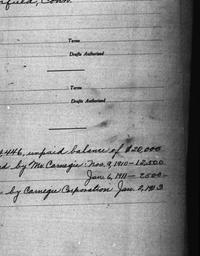 field, Conn.
Terms
Drafts Authorized
Terms
Drafts Authorized
446, unpaid balance of $20,000
ed by Mr. Carnegie: Nov. 9, 1910-12,500
Jan. 6, 1911-2500-
by Carnegie Corporation Jan. 2, 1913